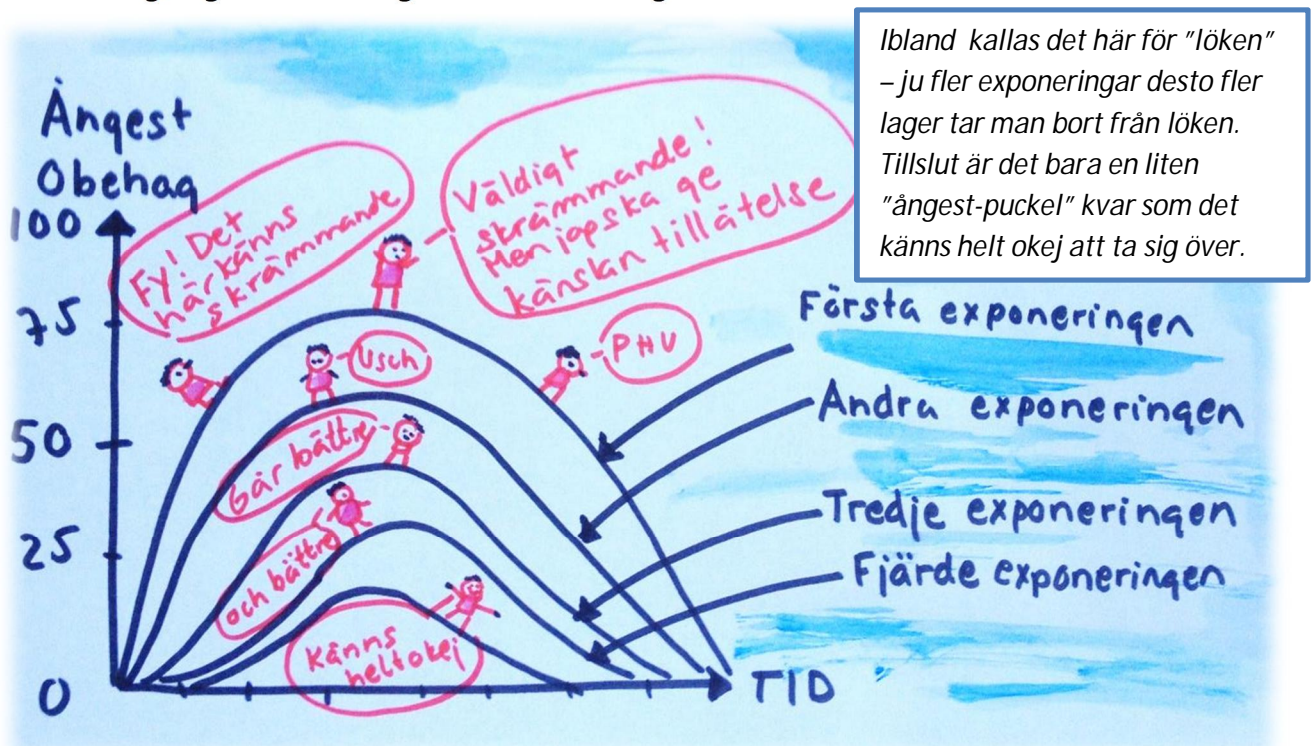 Ibland kallas det här för "löken"
– ju fler exponeringar desto fler
lager tar man bort från löken.
Tillslut är det bara en liten
"ångest-puckel" kvar som det
känns helt okej att ta sig över.
Ångest
Obehag
100
75
50
25
0
FY! Det
här känns
skrämmande
Väldigt
skrämmande!
Men jag ska ge
känslan tillåtelse
Usch
PHU
Går bättre
och bättre
Känns
helt okej
Första exponeringen
Andra exponeringen
Tredje exponeringen
Fjärde exponeringen
TID